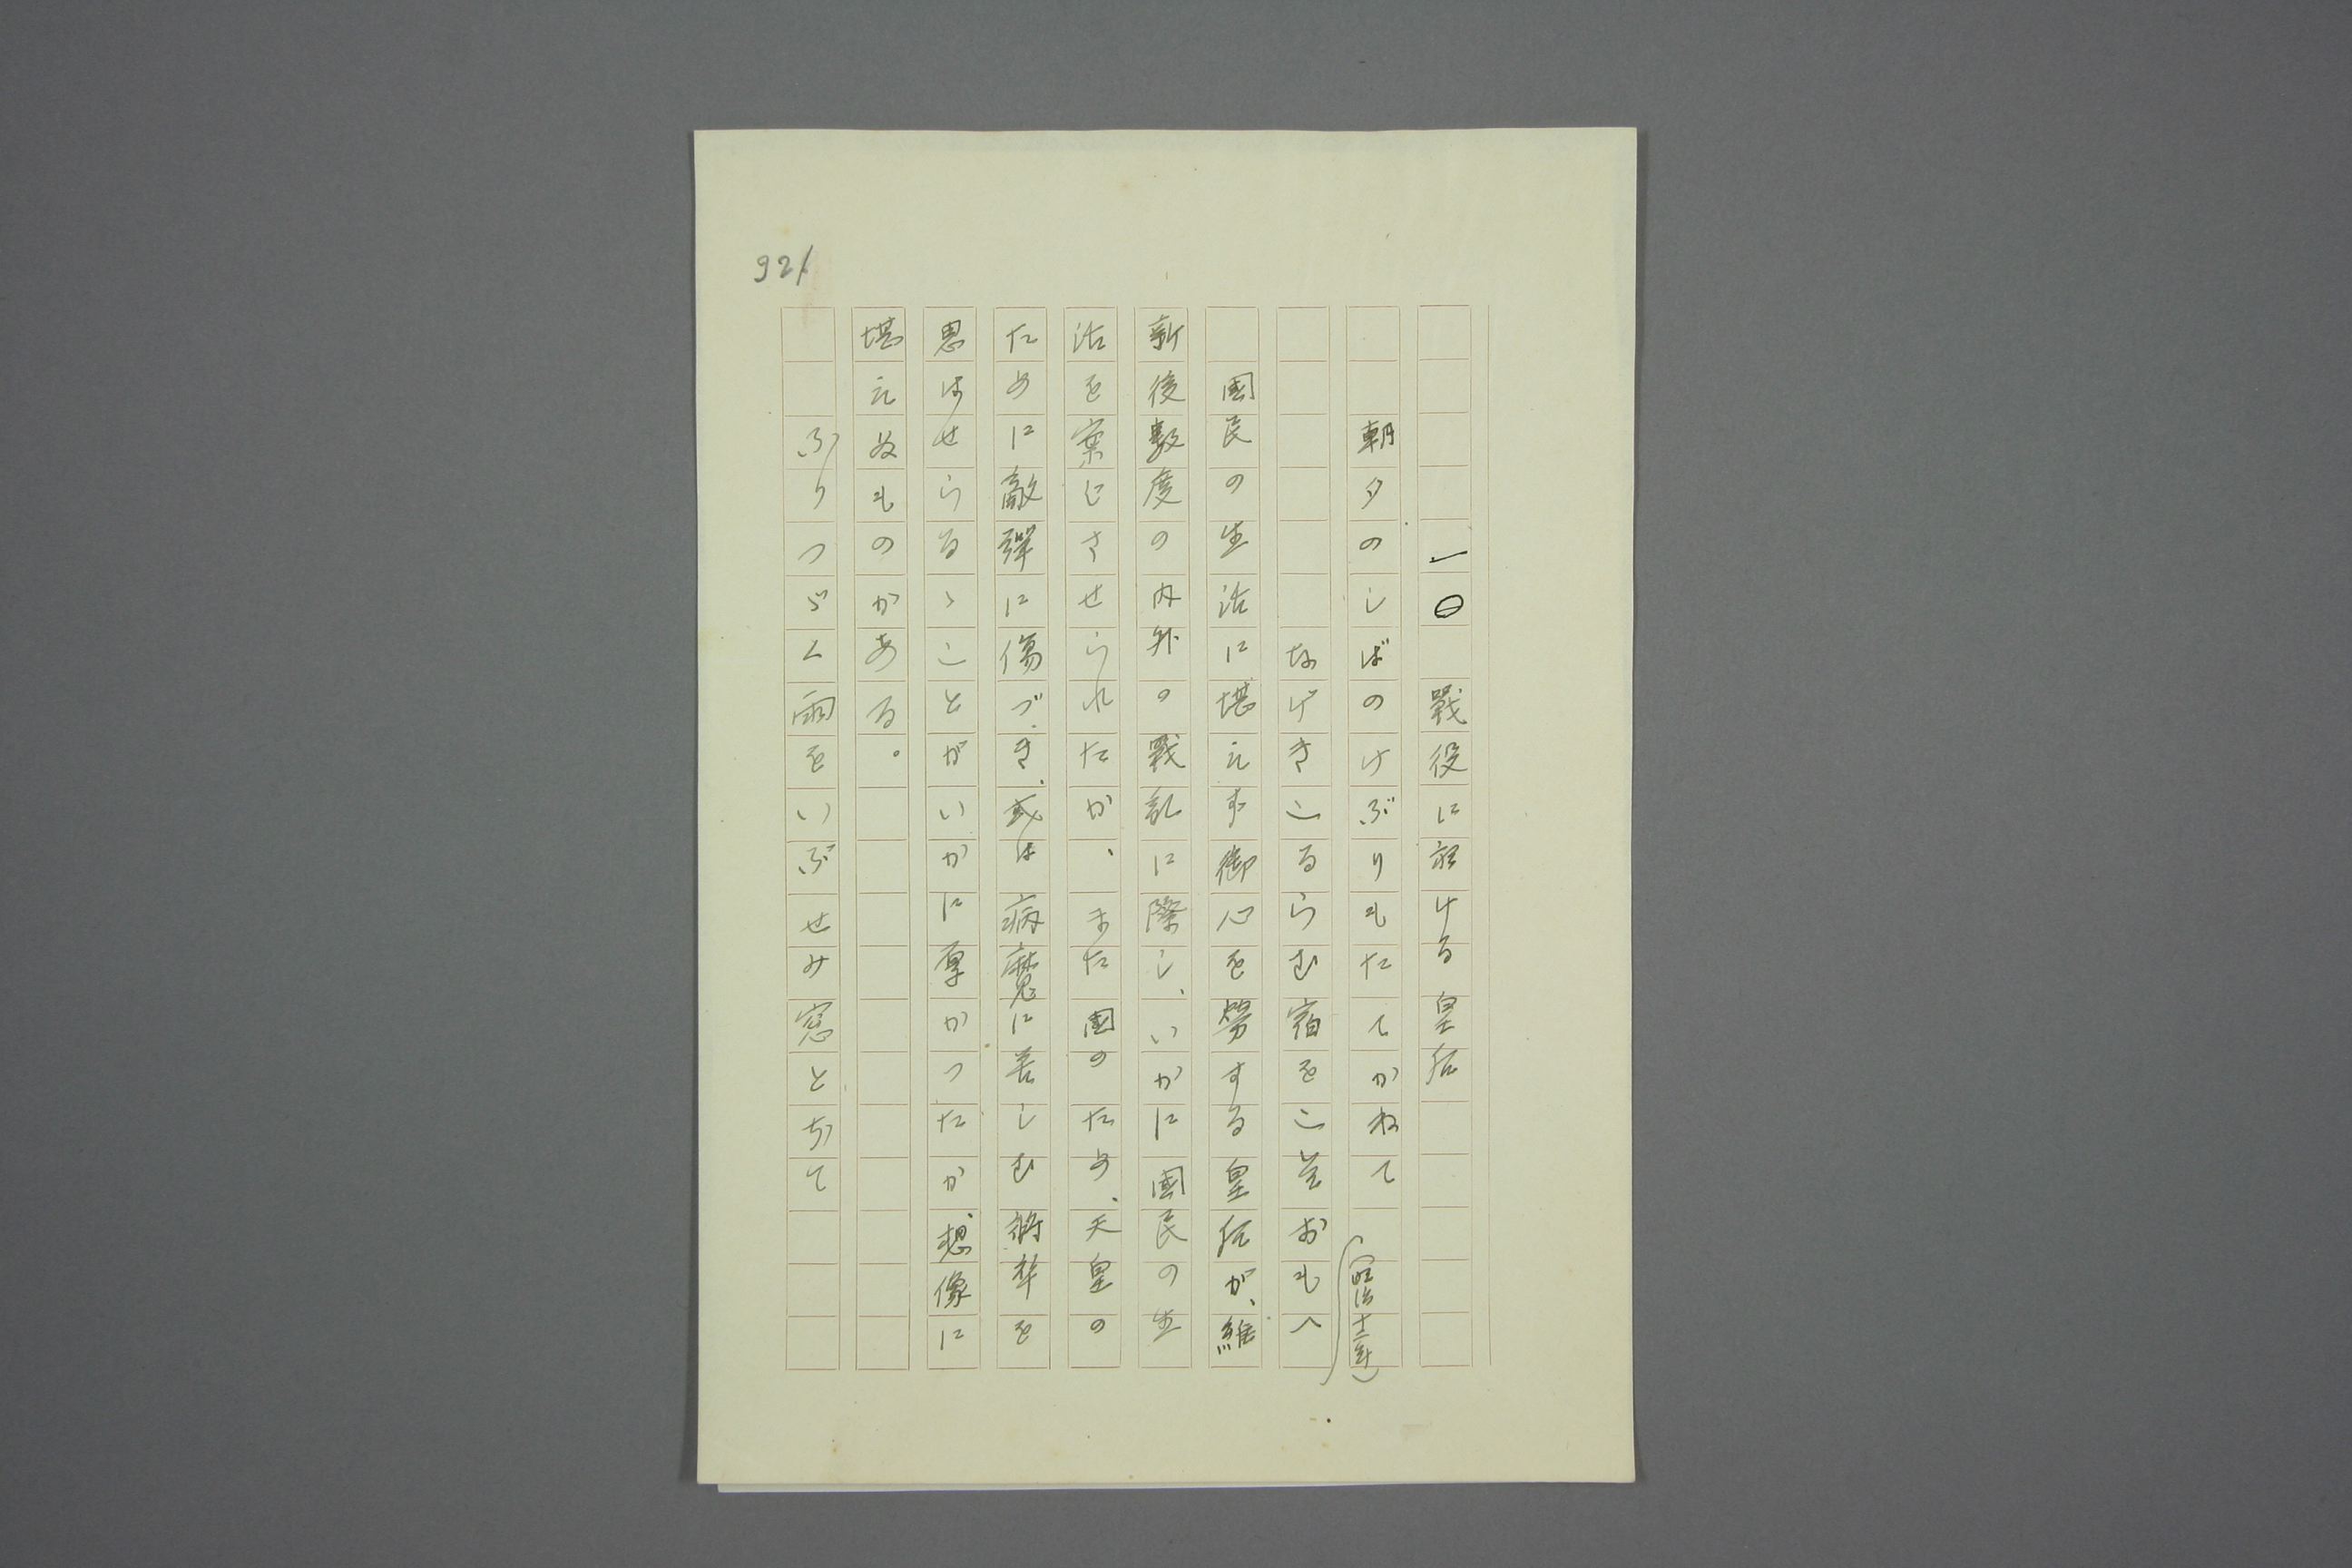 921
一〇 戰役に於ける皇后
朝夕のしばのけぶりもたてかねて
(明治十二年)
なげきこるらむ宿をこそおもへ
國民の生活に堪えず御心を勞する皇后が、維
新後數度の内外の戰乱に際し、いかに國民の生
活を案じさせられたか、また国のため、天皇の
ために敵彈に傷づき、或は病魔に苦しむ將卒を
思はせらるゝことがいかに厚かつたか、想像に
堪えぬものがある。
ふりつゞく雨をいぶせみ窓とぢて